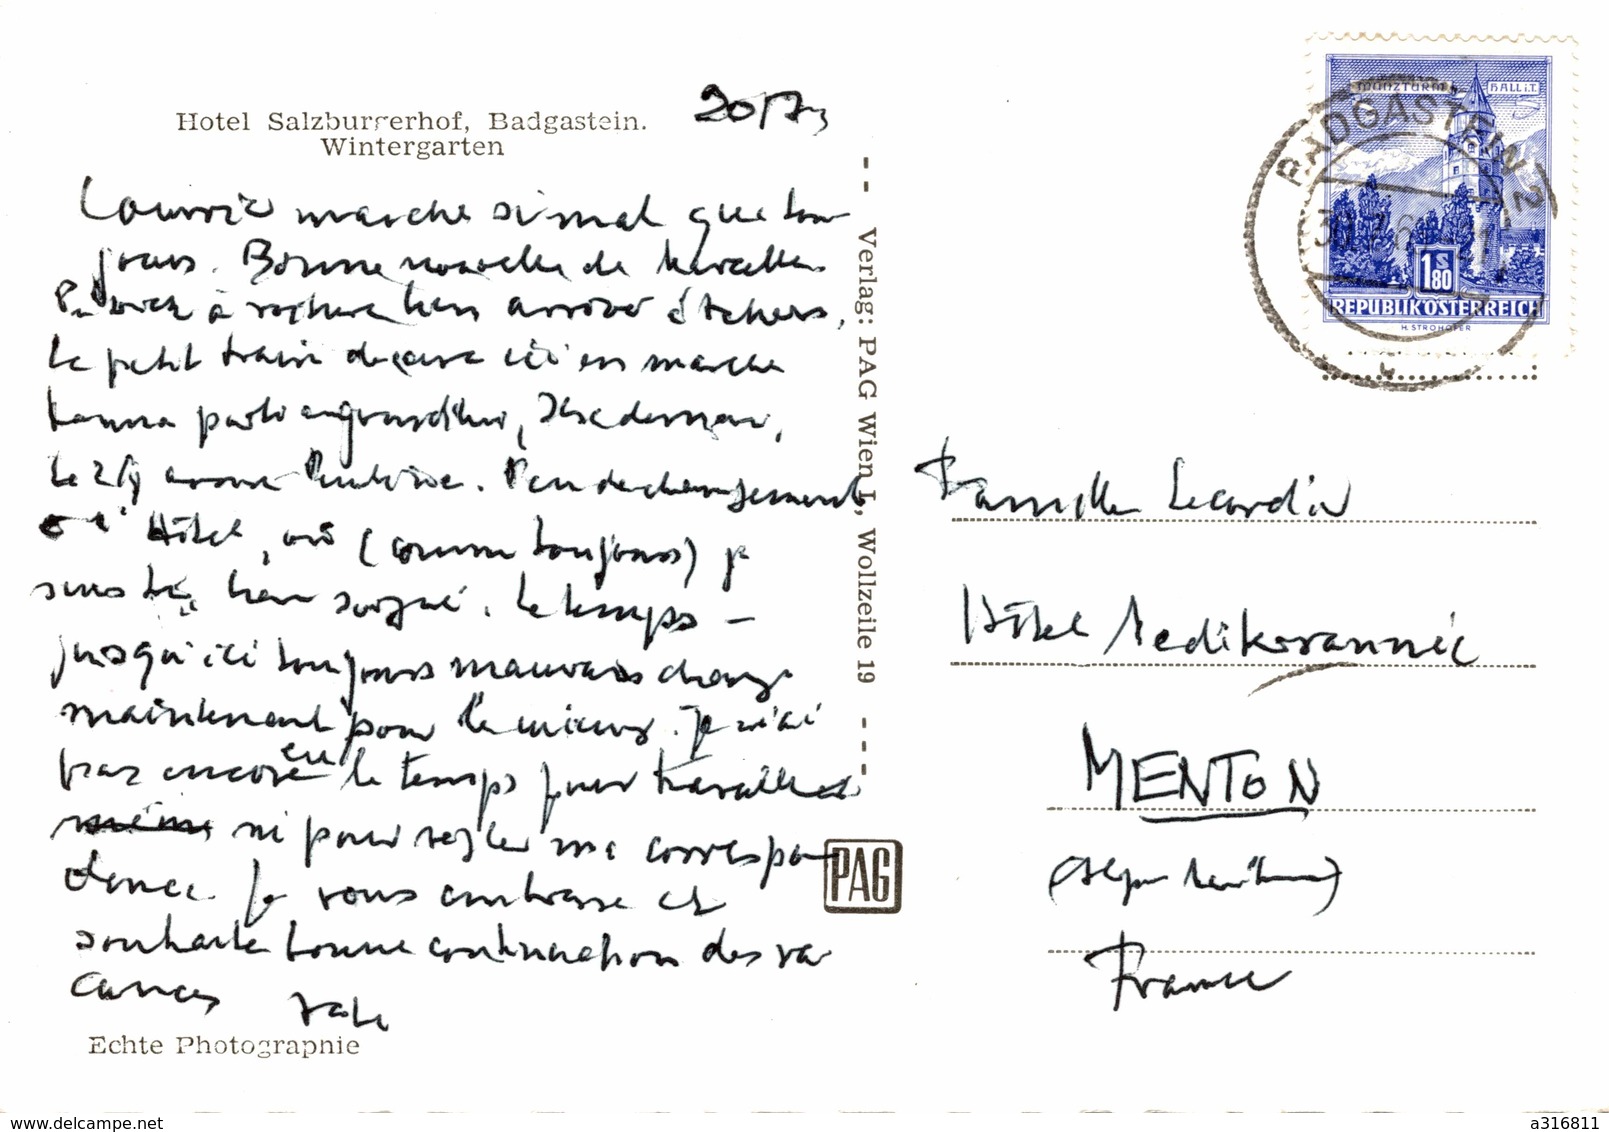 Hotel Salzburgerhof, Badgastein.
Wintergarten
Courrier marche si mal que tou-
jours. Bonne nouvelle de
à bien arrivé d'Athens,
Le petit train ici en marche
parti aujourd'hui,
Le 2/9 arrive Peu de changement
à l'Hôtel, où (comme toujours) je
suis très bien soigné. Le temps -
jusqu'ici toujours mauvais change
maintenant pour le mieux. Je n'ai
pas encore eu le temps pour travailler
ni pour régler ma correspon-
dance. Je vous embrasse et
souhaite bonne continuation des va-
cances
Echte Photographie
Verlag: PAG Wien I., Wollzeile 19
PAG
MÜNZTURM HALL i.T.
BADGASTEIN 2
1 S 80
REPUBLIK ÖSTERREICH
H. STROHOFER
Famille
Hôtel
MENTON
(Alpes Maritimes)
France
www.delcampe.net
a316811